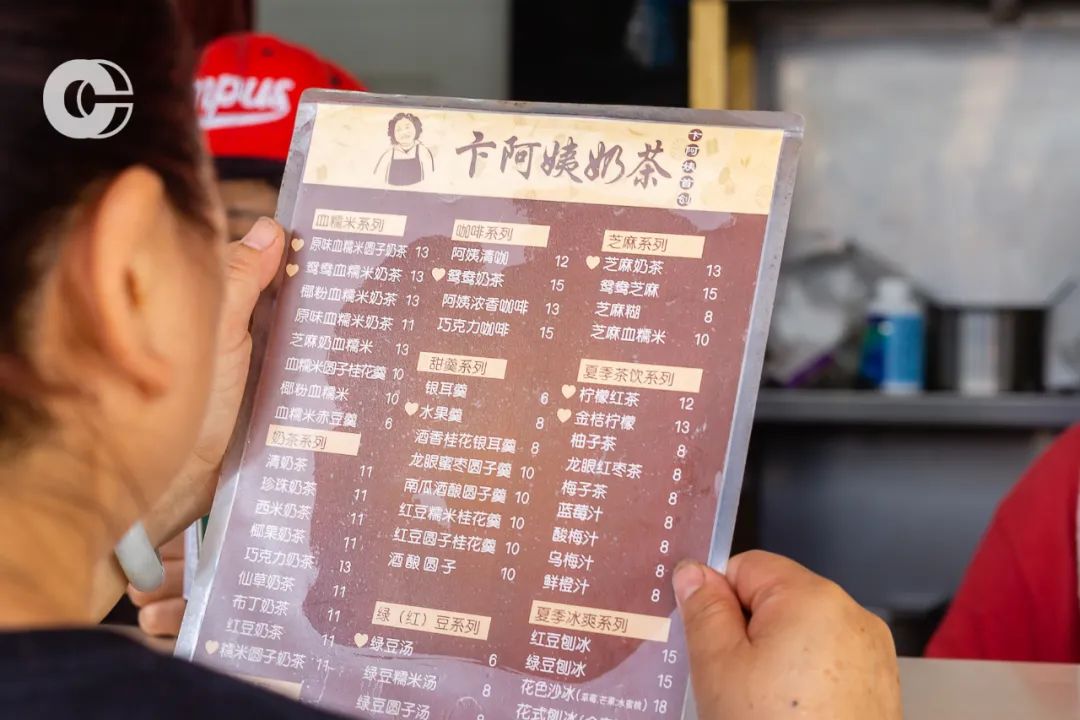 mpus
卞阿姨奶茶
卞阿姨首创
血糯米系列
原味血糯米圆子奶茶 13
鸳鸯血糯米奶茶 13
椰粉血糯米奶茶 13
原味血糯米奶茶 11
芝麻奶血糯米 13
血糯米圆子桂花羹 10
椰粉血糯米 10
血糯米赤豆羹 6
奶茶系列
清奶茶 11
珍珠奶茶 11
西米奶茶 11
椰果奶茶 11
巧克力奶茶 13
仙草奶茶 11
布丁奶茶 11
红豆奶茶 11
糯米圆子奶茶 11
咖啡系列
阿姨清咖 12
鸳鸯奶茶 15
阿姨浓香咖啡 13
巧克力咖啡 15
甜羹系列
银耳羹 6
水果羹 8
酒香桂花银耳羹 8
龙眼蜜枣圆子羹 10
南瓜酒酿圆子羹 10
红豆糯米桂花羹 10
红豆圆子桂花羹 10
酒酿圆子 10
绿（红）豆系列
绿豆汤 6
绿豆糯米汤 8
绿豆圆子汤 8
芝麻系列
芝麻奶茶 13
鸳鸯芝麻 15
芝麻糊 8
芝麻血糯米 10
夏季茶饮系列
柠檬红茶 12
金桔柠檬 13
柚子茶 8
龙眼红枣茶 8
梅子茶 8
蓝莓汁 8
酸梅汁 8
乌梅汁 8
鲜橙汁 8
夏季冰爽系列
红豆刨冰 15
绿豆刨冰 15
花色沙冰(草莓,芒果,水蜜桃) 18
花式刨冰